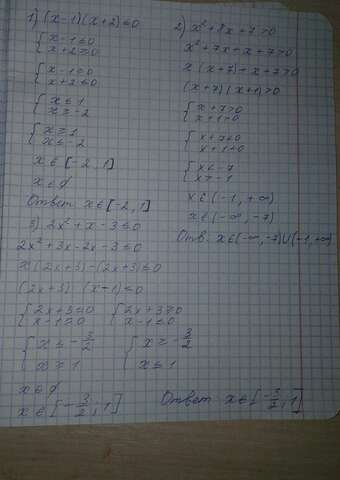 1) (x-1)(x+2)≤0
{x-1≤0
x+2≥0
{x-1≥0
x+2≤0
{x≤1
x≥-2
{x≥1
x≤-2
x∈[-2,1]
x∈∅
Ответ x∈[-2,1]
2) x²+8x+7>0
x²+7x+x+7>0
x(x+7)+x+7>0
(x+7)(x+1)>0
{x+7>0
x+1>0
{x+7<0
x+1<0
{x<-7
x>-1
x∈(-1,+∞)
x∈(-∞,-7)
Отв. x∈(-∞,-7)∪(-1,+∞)
3) 2x²+x-3≤0
2x²+3x-2x-3≤0
x(2x+3)-(2x+3)≤0
(2x+3)(x-1)≤0
{2x+3≤0 {2x+3≥0
x-1≥0 x-1≤0
{x≤-3/2 {x≥-3/2
x≥1 x≤1
x∈∅
x∈[-3/2,1] Ответ x∈[-3/2,1]